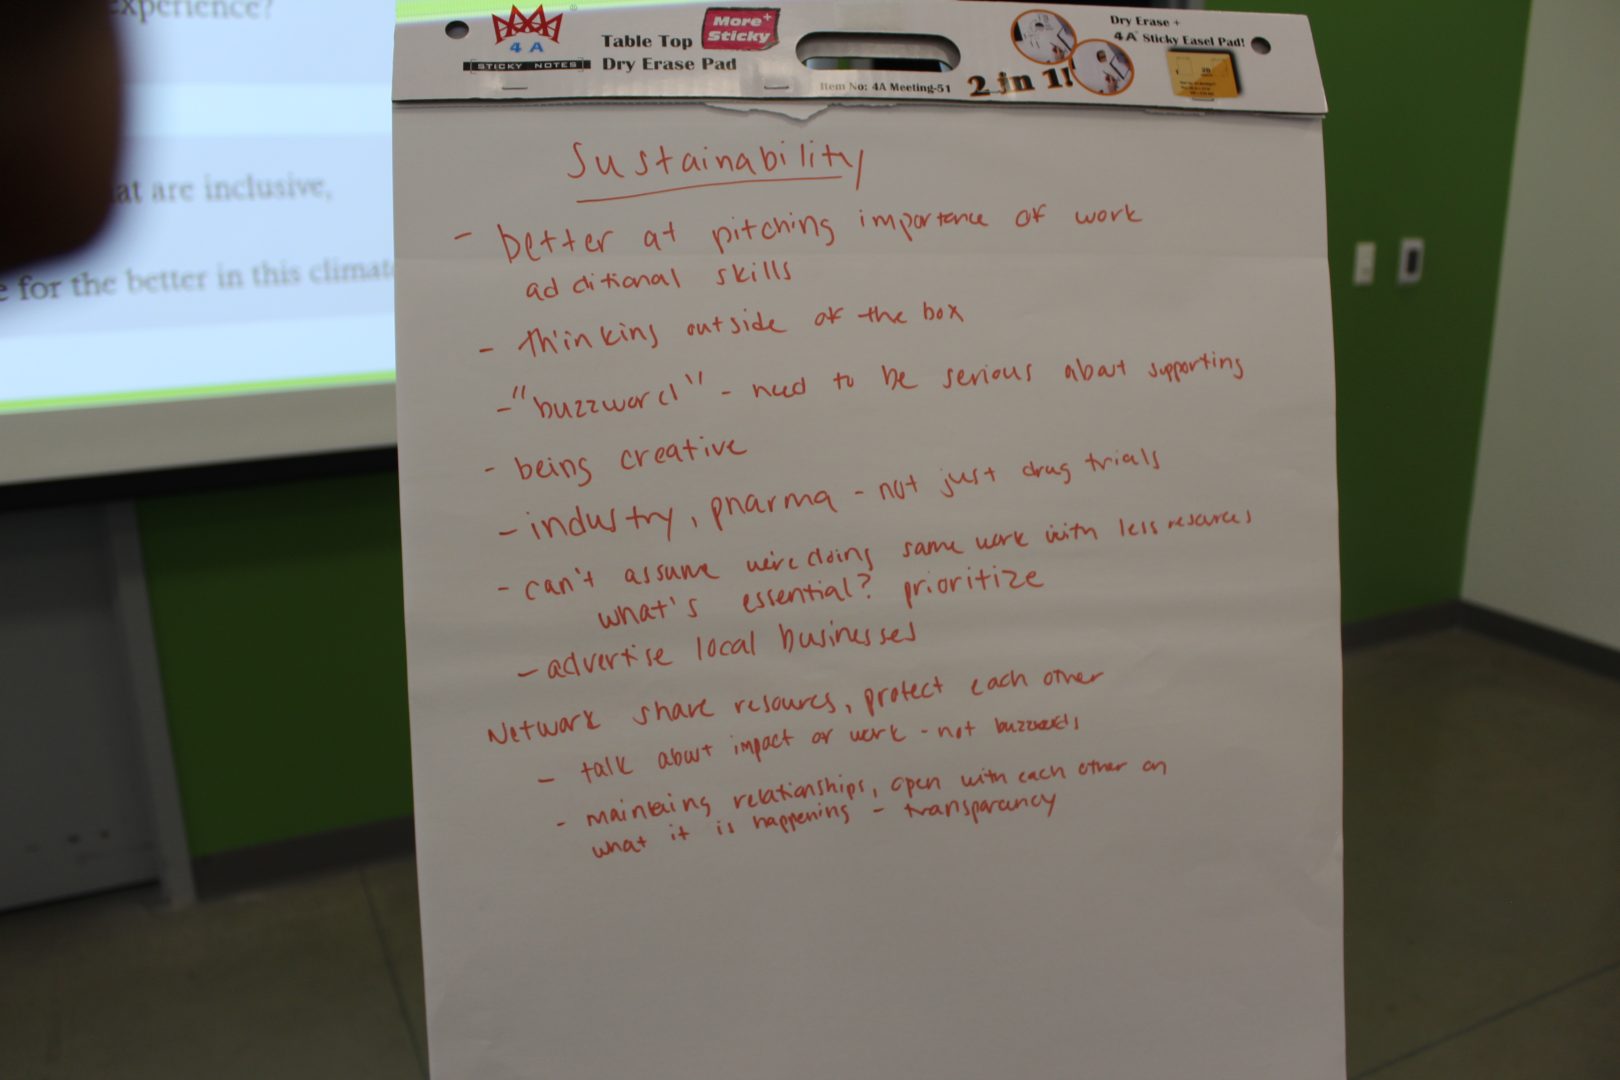 experience?
at are inclusive,
e for the better in this climat
4 A
STICKY NOTES
Table Top
Dry Erase Pad
More+
Sticky
Item No: 4A Meeting-51
2 in 1!
Dry Erase +
4A Sticky Easel Pad!
Sustainability
- better at pitching importance of work
additional skills
- thinking outside of the box
- "buzzword" - need to be serious about supporting
- being creative
- industry, pharma - not just drug trials
- can't assume we're doing same work with less resources
what's essential? prioritize
- advertise local businesses
Network share resources, protect each other
- talk about impact of work - not buzzwords
- maintaing relationships, open with each other on
what it is happening - transparancy